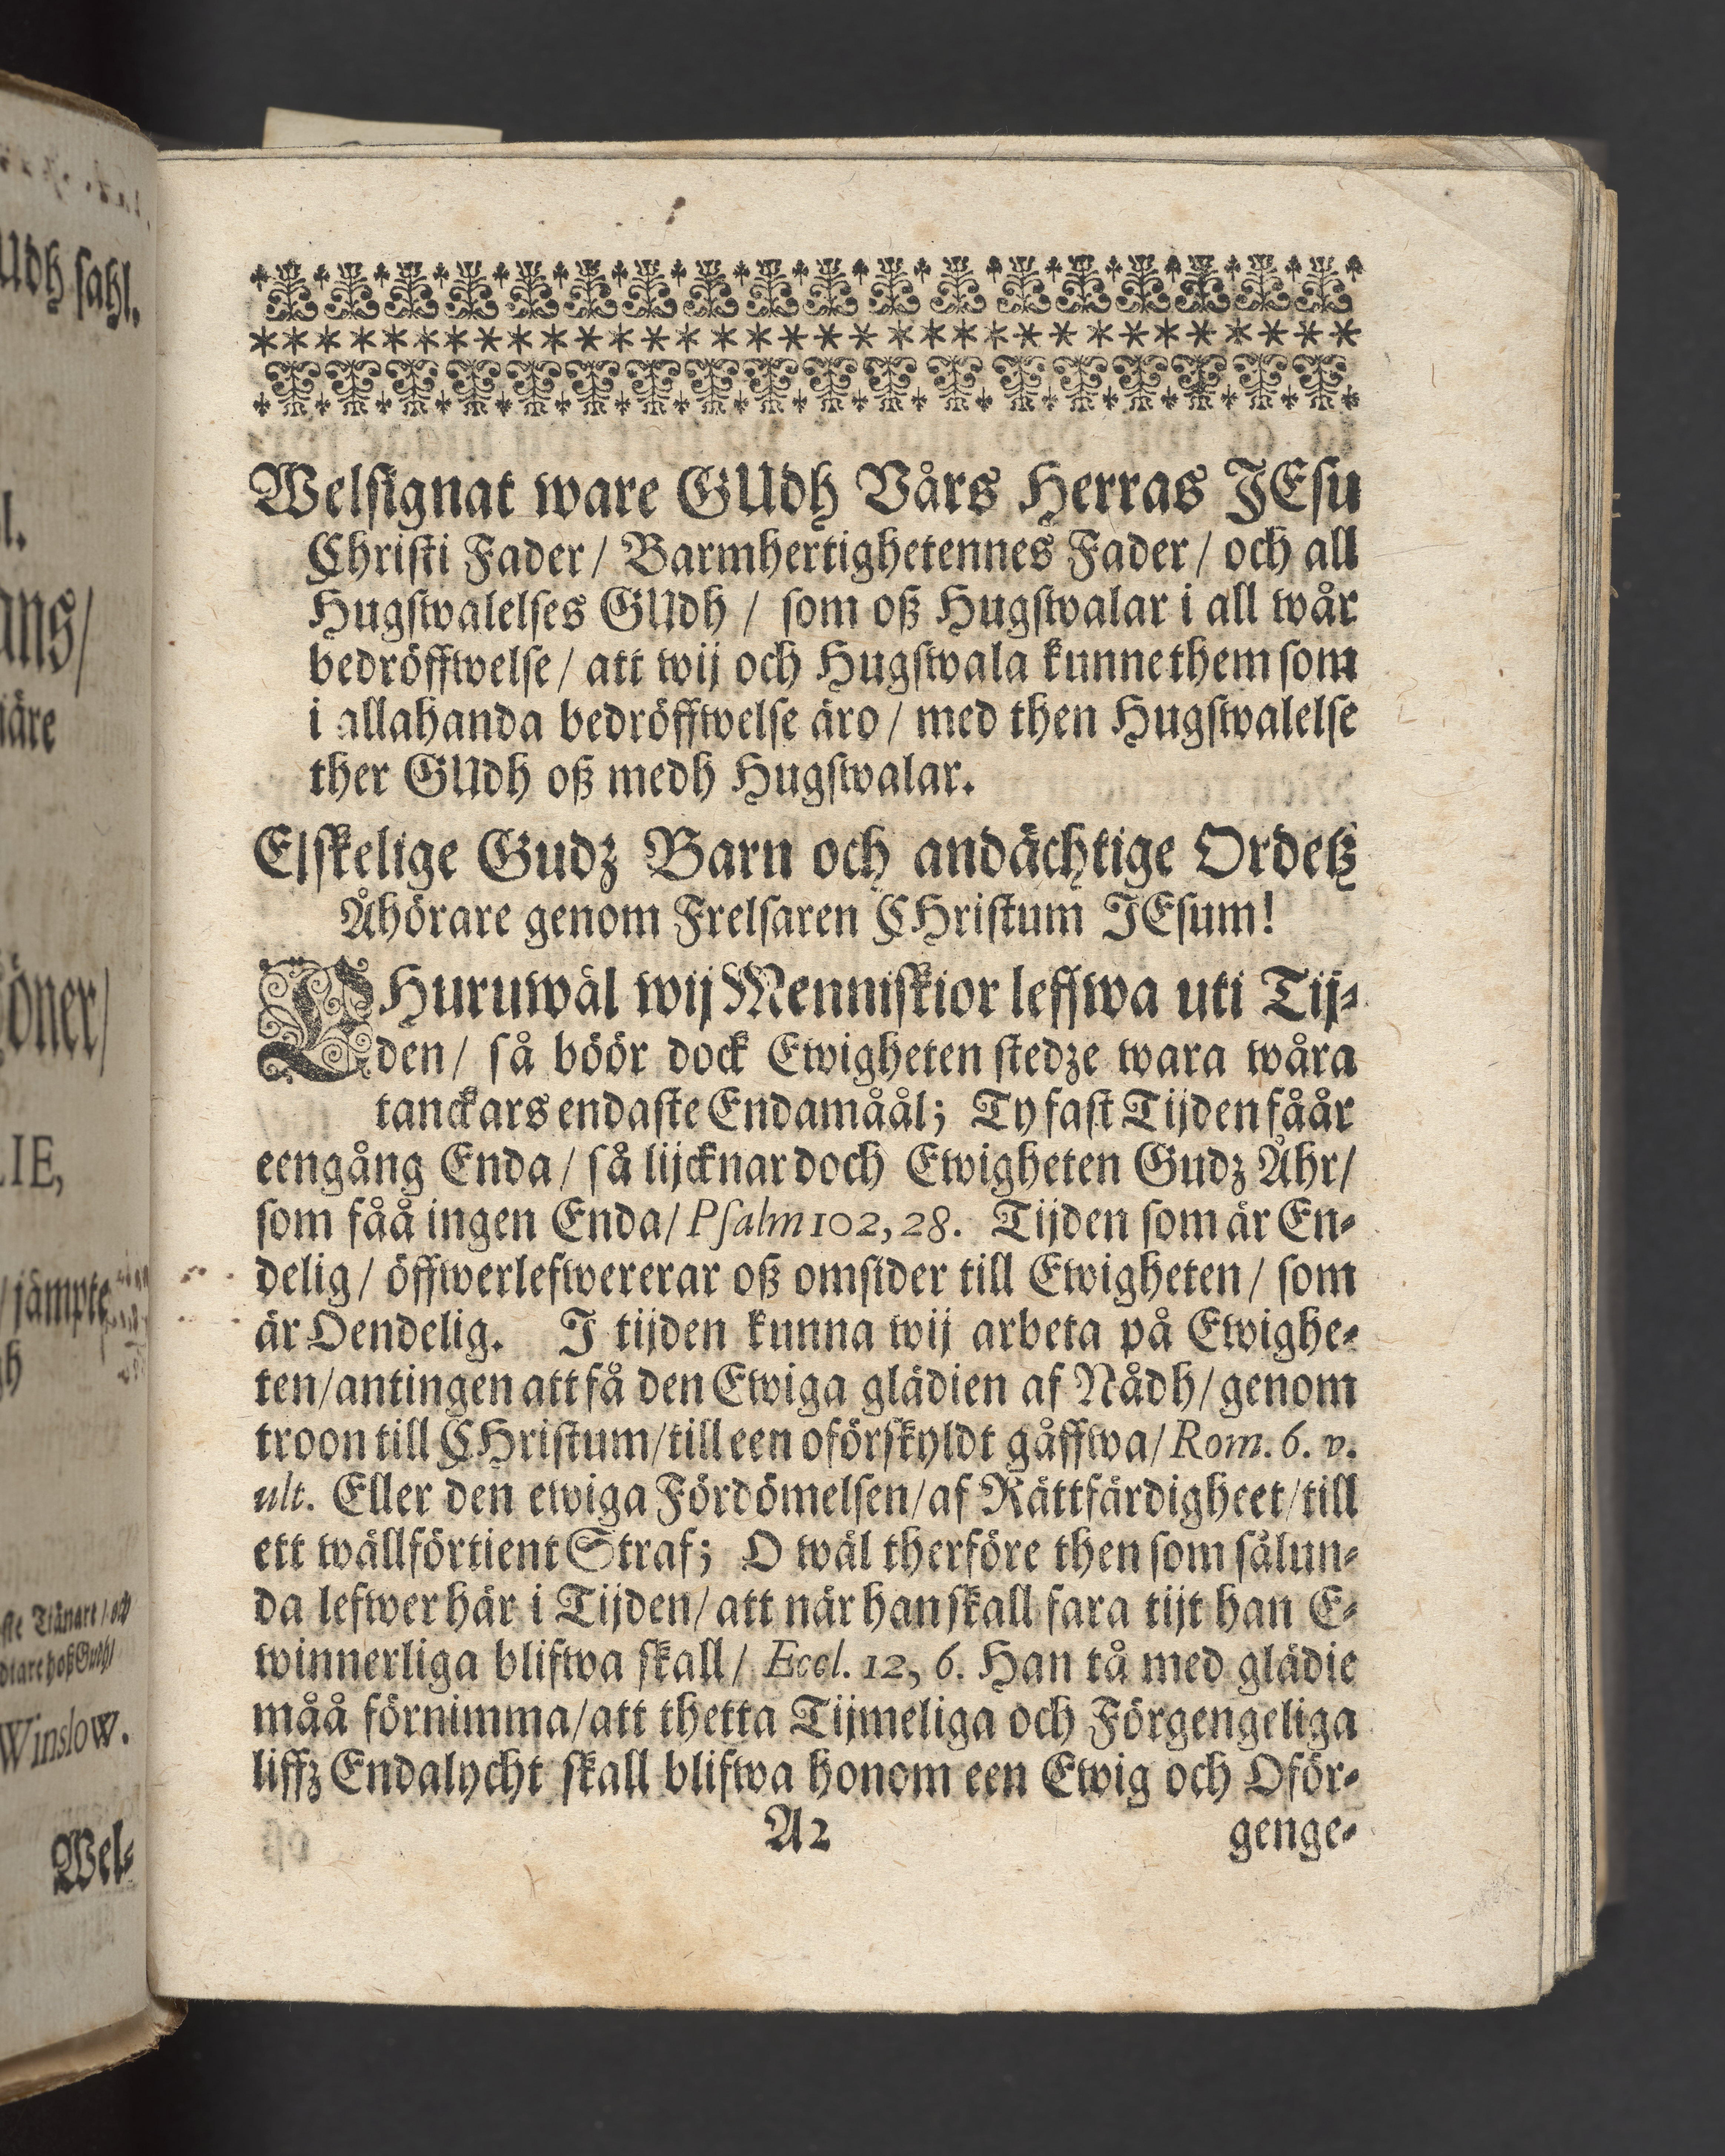 Udh sahl.
l.
ans/
iäre
öner/
LIE,
/jämpte
gh
Winslow.
Wel-
Welsignat ware GUdh Vårs Herras JEsu
Christi Fader/ Barmhertighetennes Fader/ och all
Hugswalelses GUdh / som oß Hugswalar i all wår
bedröffwelse/ att wij och Hugswala kunne them som
i allahanda bedröffwelse äro/ med then Hugswalelse
ther GUdh oß medh Hugswalar.
Elskelige Gudz Barn och andächtige Ordetz
Åhörare genom Frelsaren CHristum JEsum!
EHuruwäl wij Menniskior leffwa uti Tij-
den/ så böör dock Ewigheten stedze wara wåra
tanckars endaste Endamåål; Ty fast Tijden fåår
eengång Enda/ så lijcknar doch Ewigheten Gudz Åhr/
som fåå ingen Enda/ Psalm 102, 28. Tijden som är En-
delig/ öffwerlefwererar oß omsider till Ewigheten/ som
är Oendelig. I tijden kunna wij arbeta på Ewighe-
ten/antingen att få den Ewiga glädien af Nådh/genom
troon till CHristum/till een oförskyldt gåffwa/ Rom. 6. v.
ult. Eller den ewiga Fördömelsen/af Rättfärdigheet/till
ett wällförtient Straf; O wäl therföre then som sålun-
da lefwer här i Tijden/ att när han skall fara tijt han E-
winnerliga blifwa skall/ Eccl. 12, 6. Han tå med glädie
måå förnimma/att thetta Tijmeliga och Förgengeliga
liffz Endalycht skall blifwa honom een Ewig och Oför-
A2
genge-